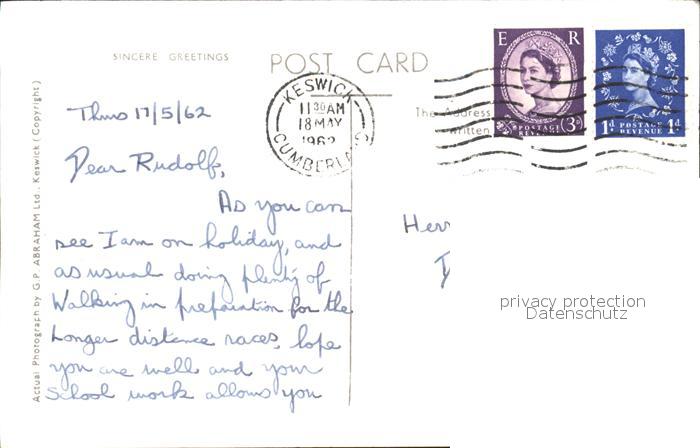 SINCERE GREETINGS
POST CARD
E R
POSTAGE
REVENUE
3D
1D POSTAGE 1D
REVENUE
KESWICK
11 30 AM
18 MAY
1962
CUMBERLAND
The Address
written
Actual Photograph by G.P. ABRAHAM Ltd., Keswick (Copyright)
Thurs 17/5/62
Dear Rudolf,
As you can
see I am on holiday, and
as usual doing plenty of
Walking in preparation for the
Longer distance races, hope
you are well and your
School work allows you
Herr
privacy protection
Datenschutz